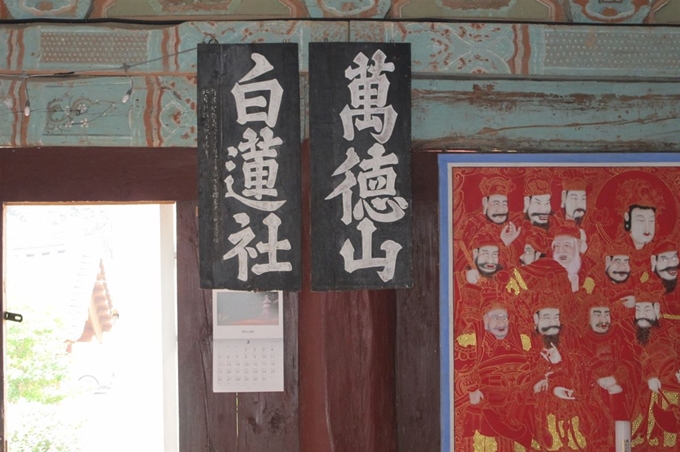 萬德山
白蓮社
3